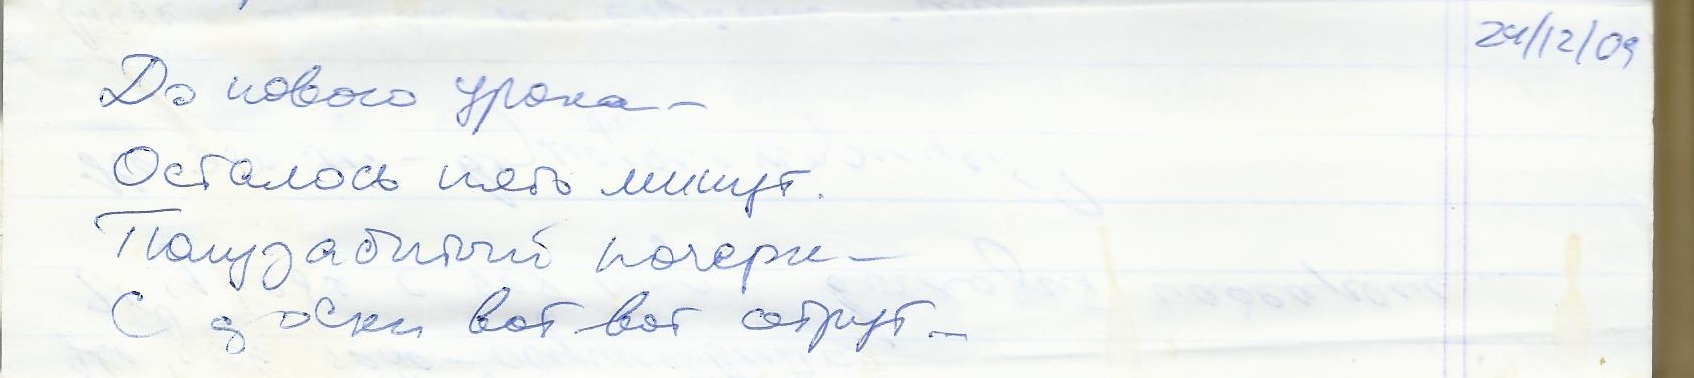 24/12/09
До нового урока –
Осталось пять минут.
Полузабытый почерк –
С доски вот-вот сотрут. –